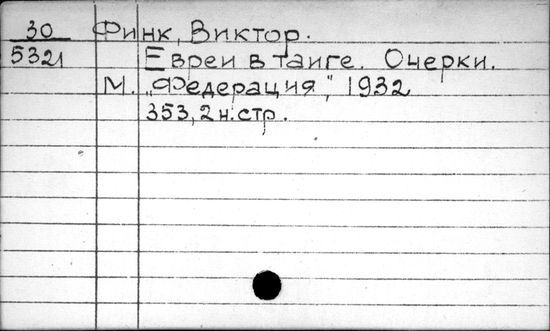 30 Финк, Виктор.
5321 Евреи в таиге. Очерки.
М. „Федерация", 1932
353, 2 н. стр.